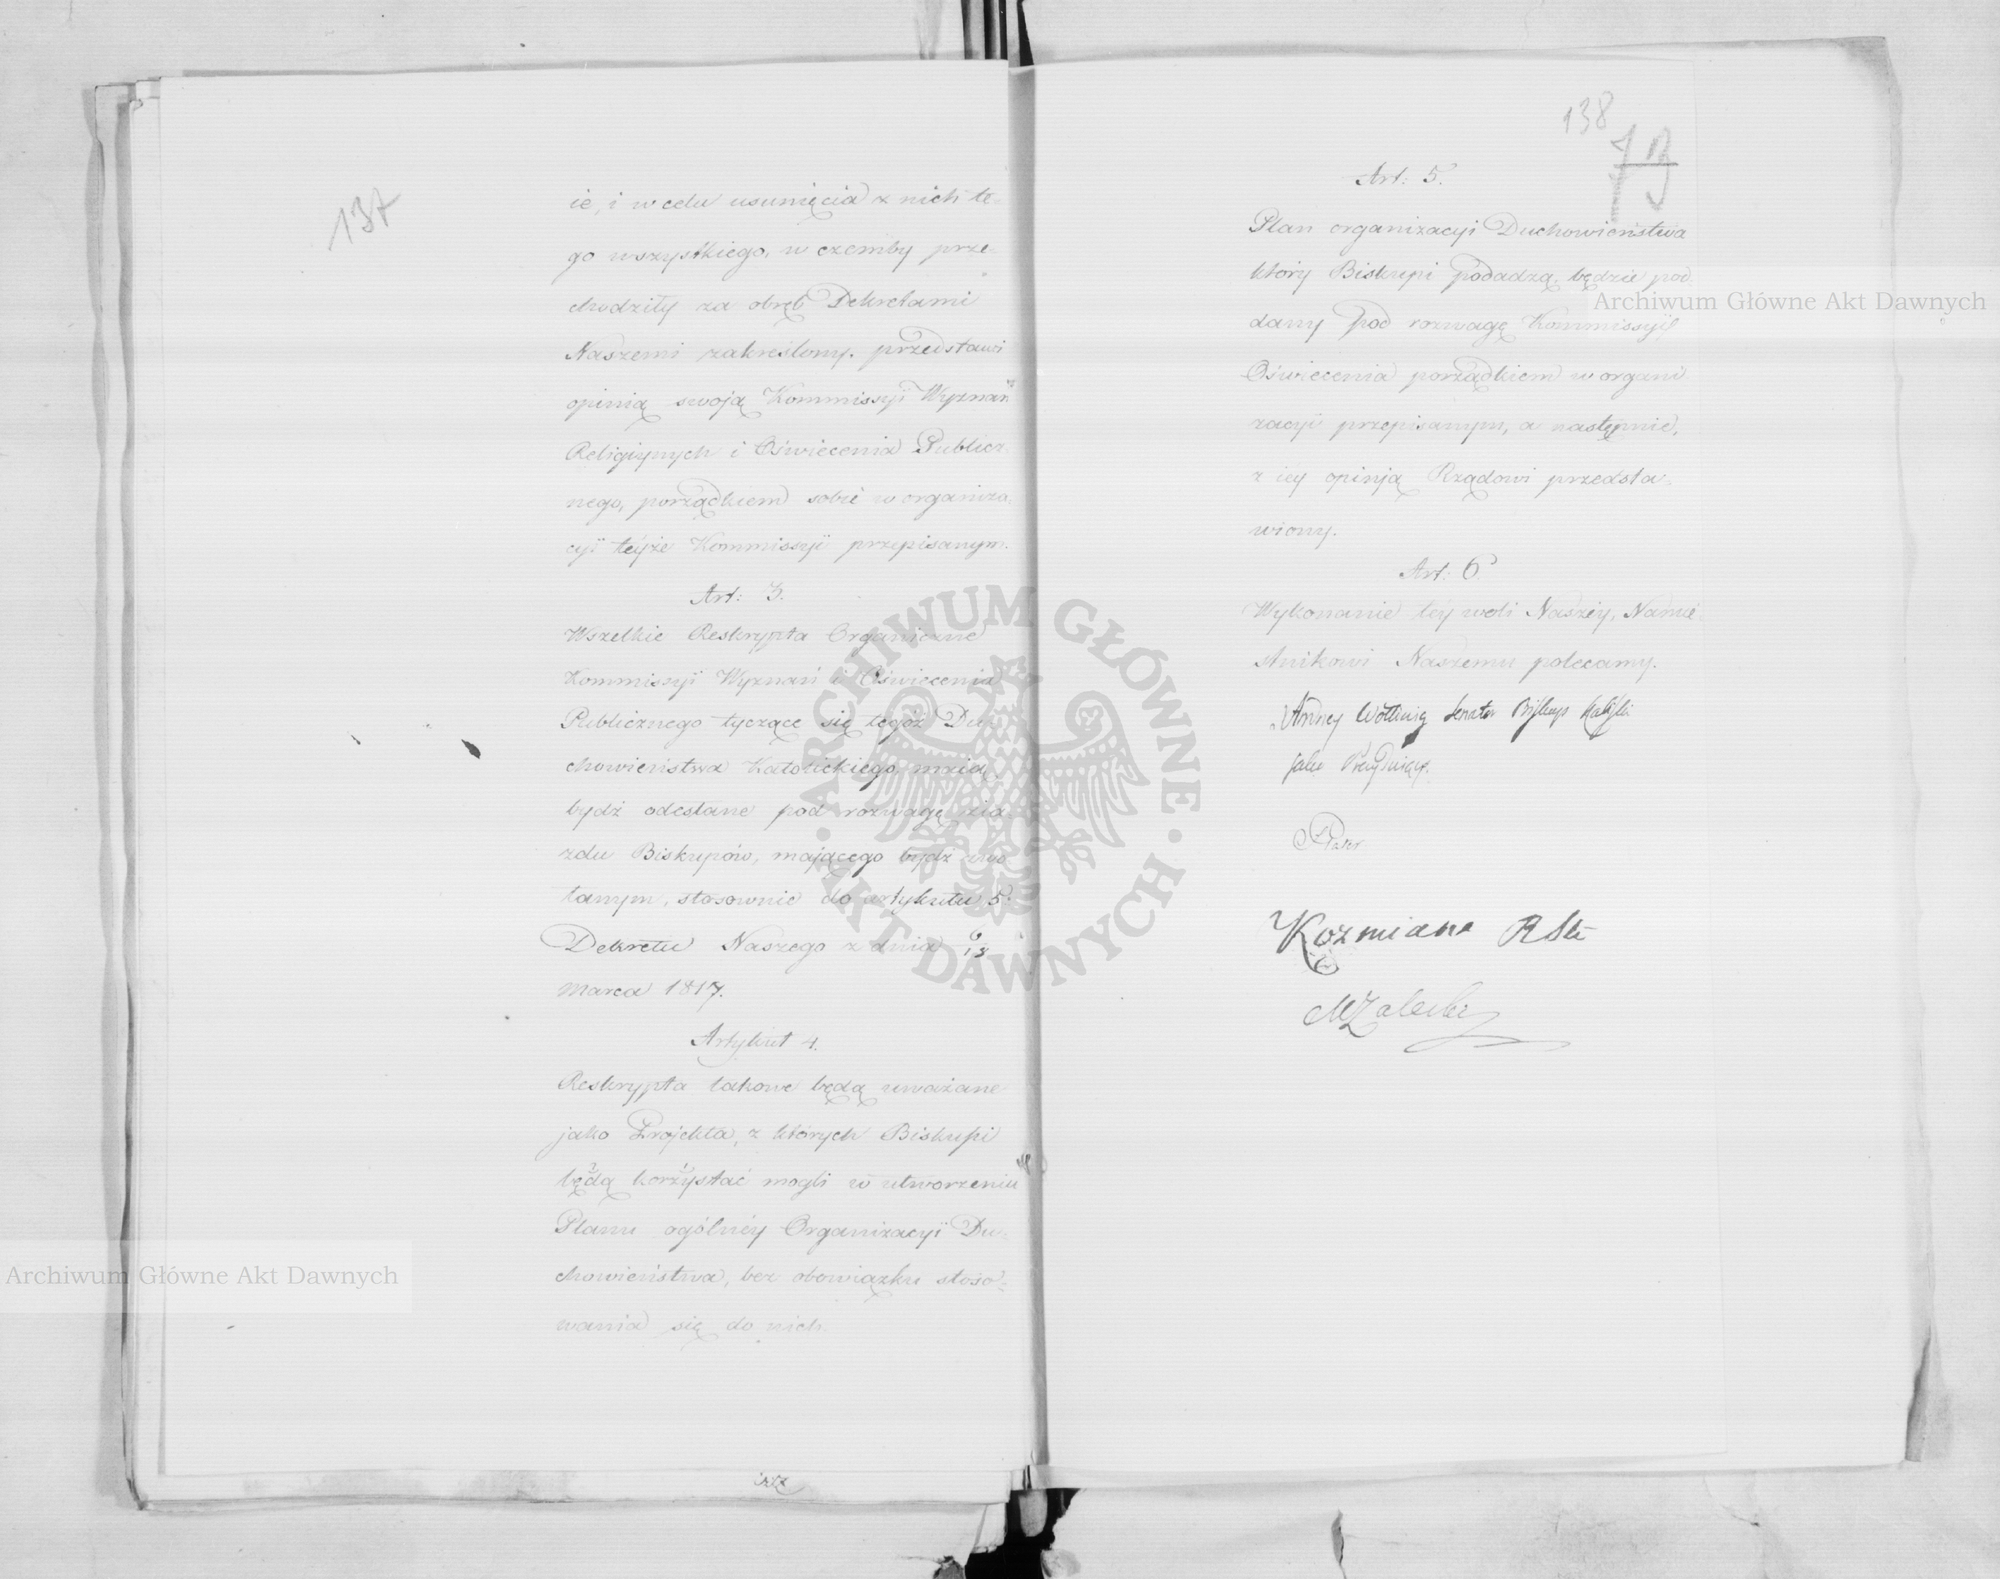 137
ie, i w celu usunięcia z nich te-
go wszystkiego, w czemby prze-
chodziły za obręb Dekretami
Naszemi zakreślony, przedstawi
opinią swoją Kommissyi Wyznań
Religiynych i Oświecenia Publicz-
nego, porządkiem sobie w organiza-
cyi teyże Kommissyi przepisanym.
Art: 3.
Wszelkie Reskrypta Organiczne
Kommissyi Wyznań i Oświecenia
Publicznego tyczące się tegoż Du-
chowieństwa Katolickiego, maią
bydź odesłane pod rozwagę zia-
zdu Biskupów, mającego bydź zwo-
łanym, stosownie do artykułu 5.
Dekretu Naszego z dnia 6/18
Marca 1817.
Artykuł 4.
Reskrypta takowe będą uważane
jako Projekta, z których Biskupi
będą korzystać mogli w utworzeniu
Planu ogólney Organizacyi Du-
chowieństwa, bez obowiązku stoso-
wania się do nich.
138
Art: 5.
Plan organizacyi Duchowieństwa
który Biskupi podadzą, będzie pod-
dany pod rozwagę Kommissyi
Oświecenia porządkiem w organi
zacyi przepisanym, a następnie,
z iey opinją Rządowi przedsta-
wiony.
Art: 6
Wykonanie tey woli Naszey, Namie
stnikowi Naszemu polecamy.
Senator
Jako Prezyduiący.
Koźmian RSt
MZaleski
Archiwum Główne Akt Dawnych
Archiwum Główne Akt Dawnych
ARCHIWUM GŁÓWNE
AKT DAWNYCH